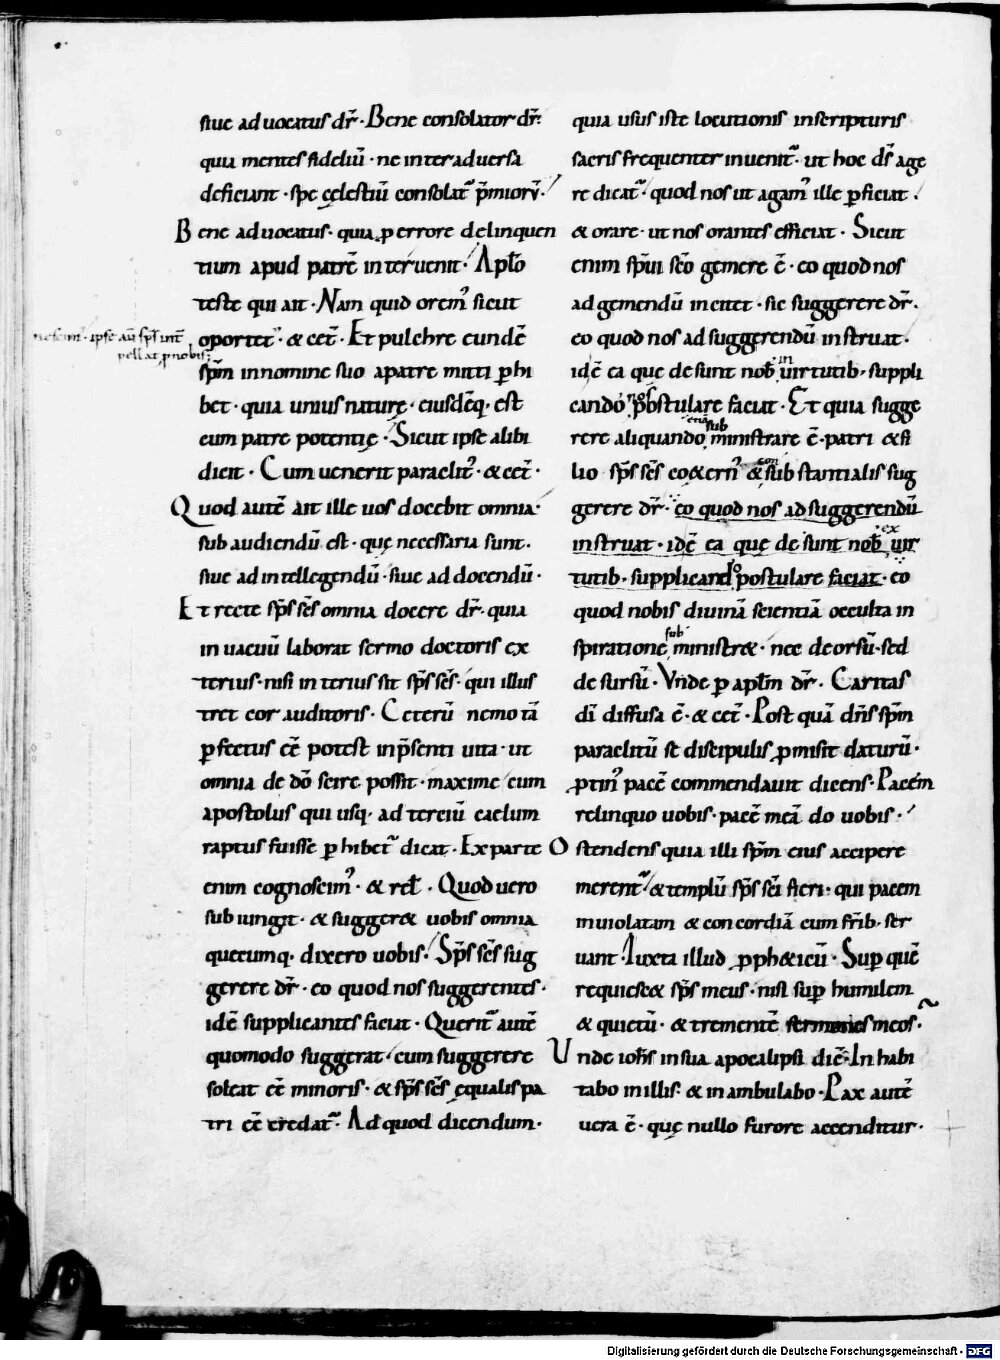 siue aduocatus dr̄. Bene consolator dr̄.
quia mentes fideliū. ne inter aduersa
deficiant. spe cęlestiū consolat᷑ p̄miorū.
Bene aduocatus. quia ꝑ errore delinquen
tium apud patrē interuenit. Apłō
teste qui ait. Nam quid orem᷒ sicut
nescim᷒. ipse aū sp̄s int̄
pellat ꝓ nobis;
oportet᷑. & cet̄. Et pulchre eundē
sp̄m in nomine suo a patre mitti ꝑhi
bet. quia unius naturę. eiusdēq; est
cum patre potentię. Sicut ipse alibi
dicit. Cum uenerit paraclit᷒. & cet̄.
Quod autē ait ille uos docebit omnia.
subaudiendū est. quę necessaria sunt.
siue ad intellegendū. siue ad docendū.
Et recte sp̄s sc̄s omnia docere dr̄. quia
in uacuū laborat sermo doctoris ex
terius. nisi interius sit sp̄s sc̄s. qui illus
tret cor auditoris. Ceterū nemo tā
ꝑfectus eē potest in p̄senti uita. ut
omnia de dō scire possit. maxime cum
apostolus qui usq; ad terciū caelum
raptus fuisse ꝑhibet᷑ dicat. Ex parte
enim cognoscim᷒. & rel̄. Quod uero
subiungit. & sugger& uobis omnia
quecumq; dixero uobis. Sp̄s sc̄s sug
gerere dr̄. eo quod nos suggerentes.
idē supplicantes faciat. Querit᷑ autē
quomodo suggerat. cum suggerere
soleat eē minoris. & sp̄s sc̄s ęqualis pa
tri eē credat᷑. Ad quod dicendum.
quia usus iste locutionis in scripturis
sacris frequenter inuenit᷑. ut hoc d̄s age
re dicat᷑. quod nos ut agam᷒ ille ꝑficiat.
& orare. ut nos orantes efficiat. Sicut
enim sp̄ui sc̄o gemere ē. eo quod nos
ad gemendū incitet. sic suggerere dr̄.
eo quod nos ad suggerendū instruat.
in
idē ea que desunt nob̄ uirtutib; suppli
cando postulare faciat. Et quia sugge
sub
rere aliquando ministrare ē. patri & fi
con
lio sp̄s sc̄s coętern᷒ & substantialis sug
gerere dr̄. eo quod nos ad suggerendū
ex
instruat. idē ea quę desunt nob̄ uir
tutib; supplicando postulare faciat. eo
quod nobis diuinā scientiā occulta in
sub
spiratione ministr&. nec deorsū. sed
desursū. Vnde ꝑ apłm dr̄. Caritas
dī diffusa ē. & cet̄. Post quā dn̄s sp̄m
paraclitū se discipulis ꝓmisit daturū.
ꝓtin᷒ pacē commendauit dicens. Pacem
relinquo uobis. pacē meā do uobis.
Ostendens quia illi sp̄m eius accipere
merent᷑. & templū sp̄s sc̄i fieri. qui pacem
inuiolatam & concordiā cum fr̄ib; ser
uant. Iuxta illud ꝓph&icū. Suꝑ quē
requiesc& sp̄s meus. nisi suꝑ humilem
& quietū. & trementē sermones meos.
Vnde ioh̄s in sua apocalipsi dic̄. Inhabi
tabo in illis. & inambulabo. Pax autē
uera ē. quę nullo furore accenditur.
Digitalisierung gefördert durch die Deutsche Forschungsgemeinschaft - DFG